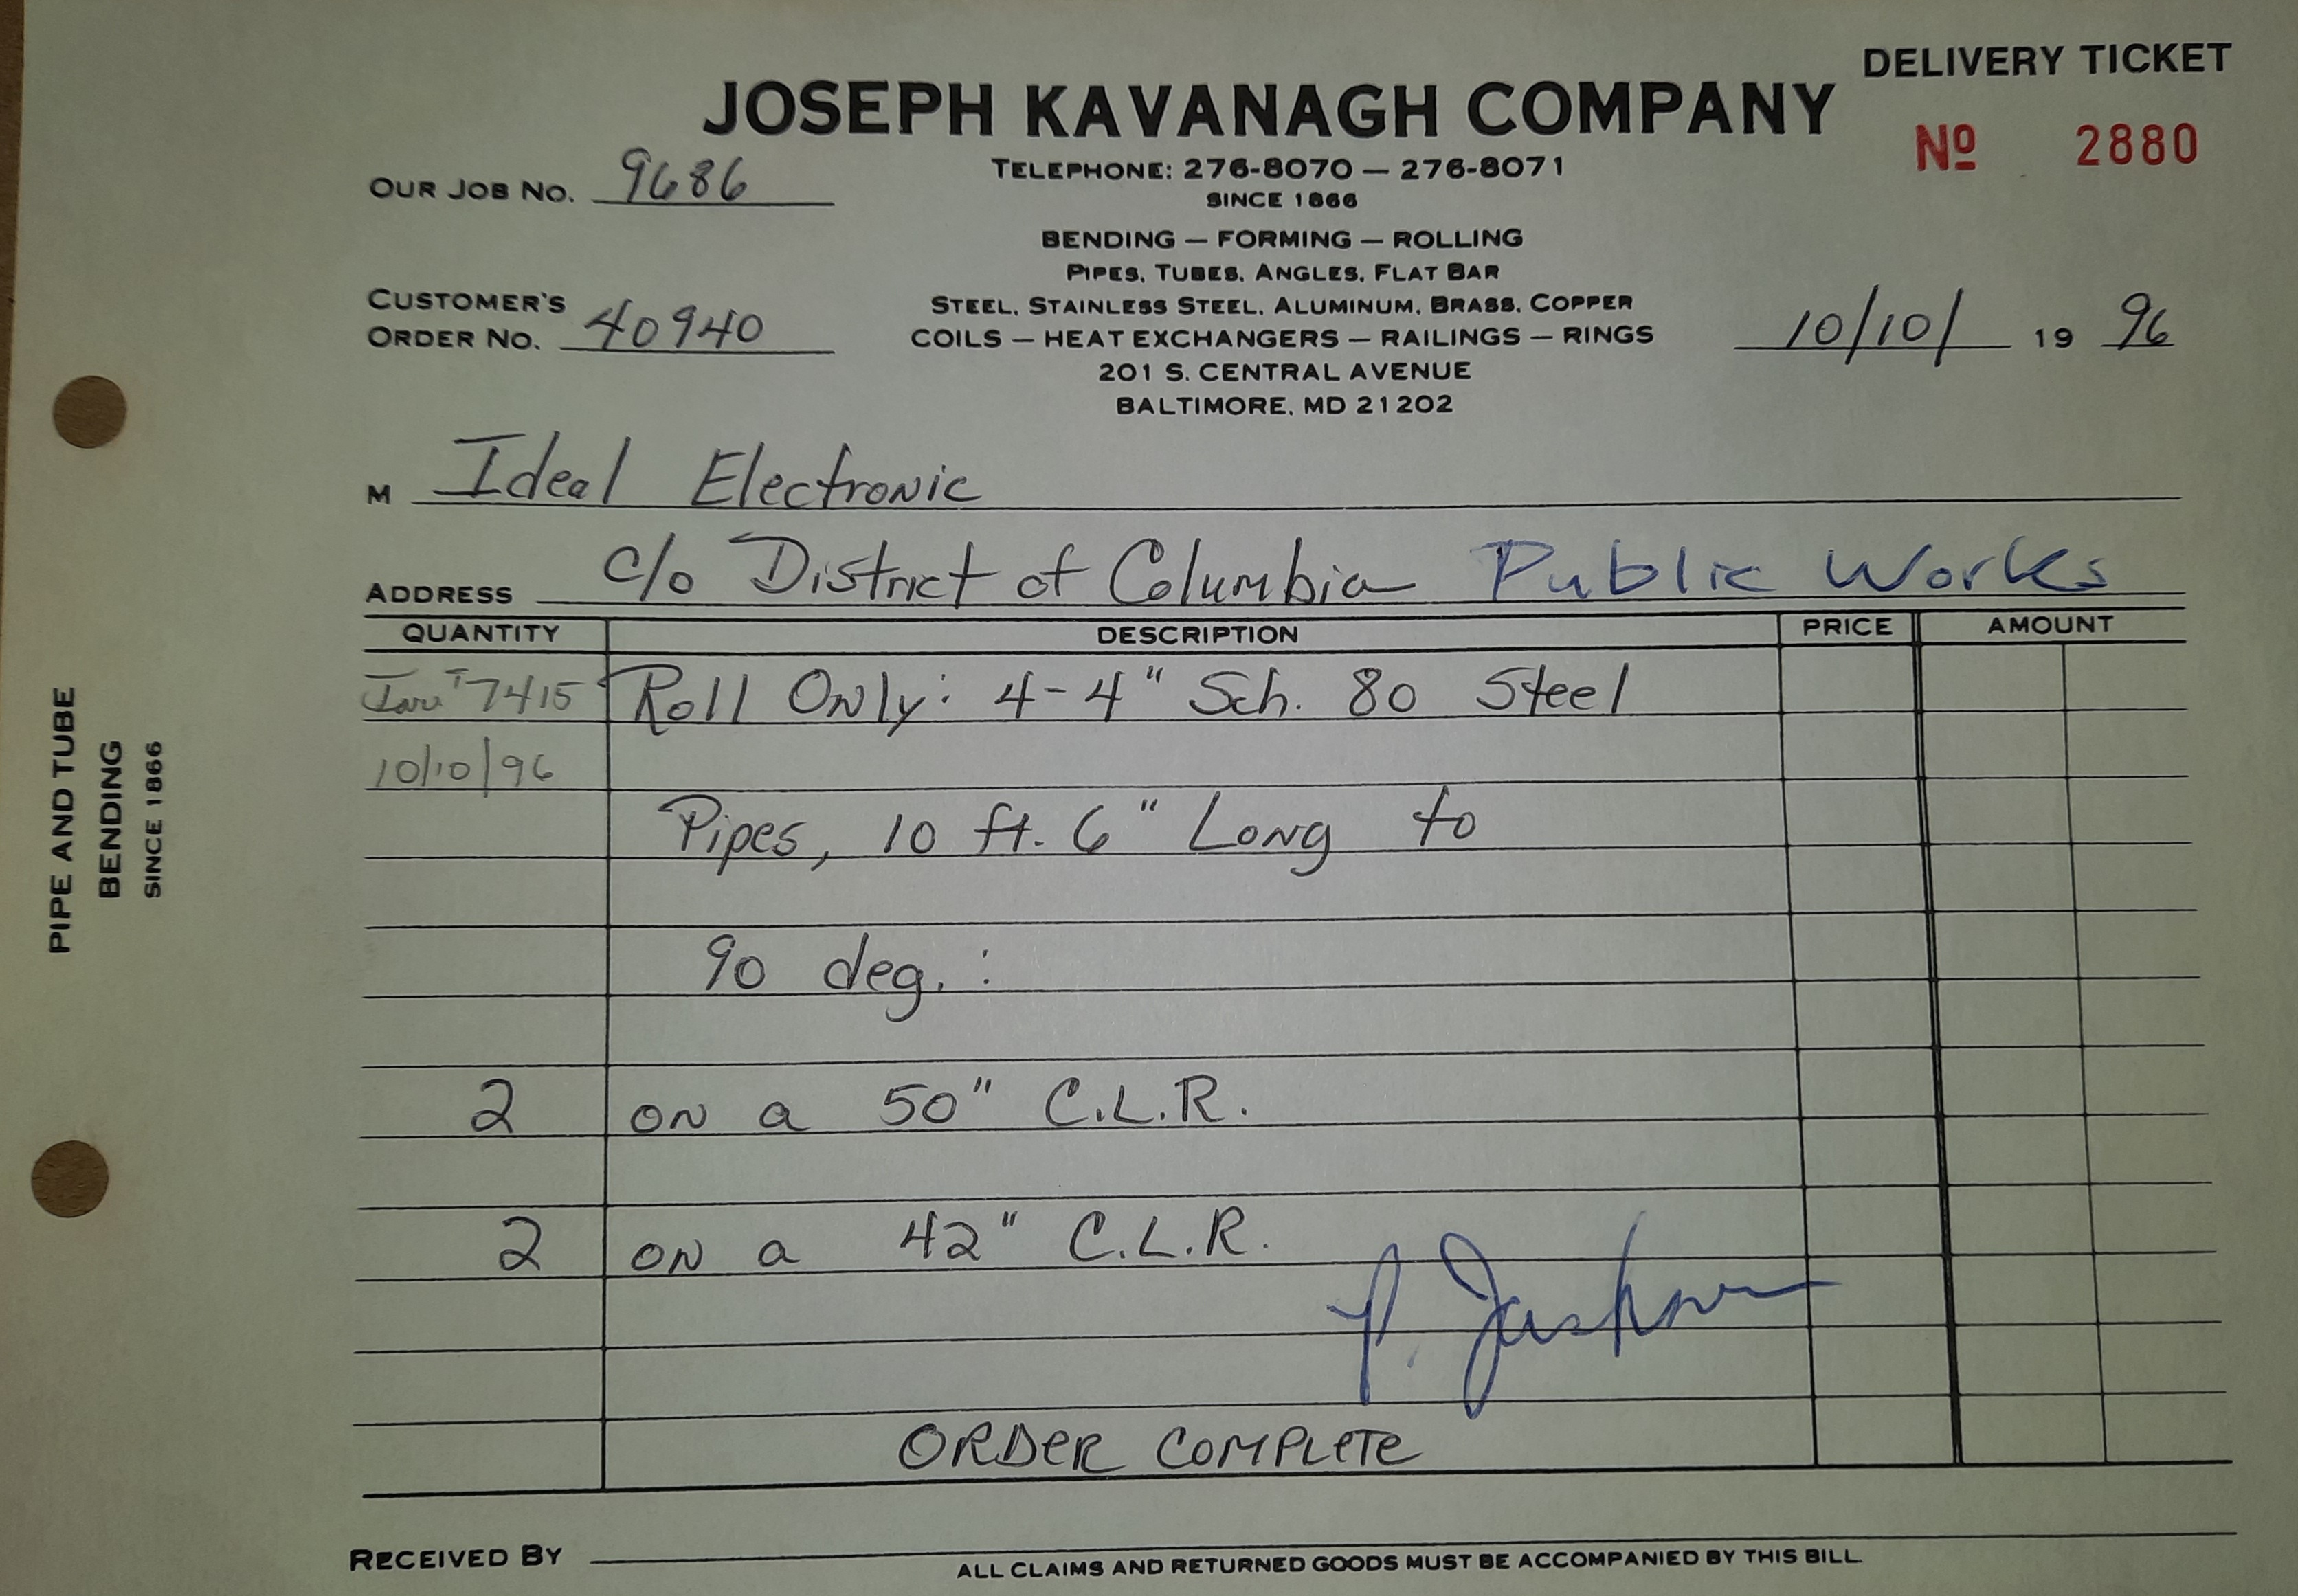 DELIVERY TICKET
JOSEPH KAVANAGH COMPANY
No 2880
TELEPHONE: 276-8070 — 276-8071
SINCE 1866
OUR JOB NO. 9686
BENDING — FORMING — ROLLING
PIPES, TUBES, ANGLES, FLAT BAR
STEEL, STAINLESS STEEL, ALUMINUM, BRASS, COPPER
CUSTOMER'S
ORDER NO. 40940
COILS — HEAT EXCHANGERS — RAILINGS — RINGS
10/10/ 19 96
201 S. CENTRAL AVENUE
BALTIMORE, MD 21202
M Ideal Electronic
ADDRESS c/o District of Columbia Public Works
QUANTITY DESCRIPTION PRICE AMOUNT
7415 Roll Only: 4-4" Sch. 80 Steel
10/10/96
Pipes, 10 ft. 6" Long to
90 deg. :
2 on a 50" C.L.R.
2 on a 42" C.L.R.
Jackson
ORDER COMPLETE
RECEIVED BY
ALL CLAIMS AND RETURNED GOODS MUST BE ACCOMPANIED BY THIS BILL.
PIPE AND TUBE
BENDING
SINCE 1866